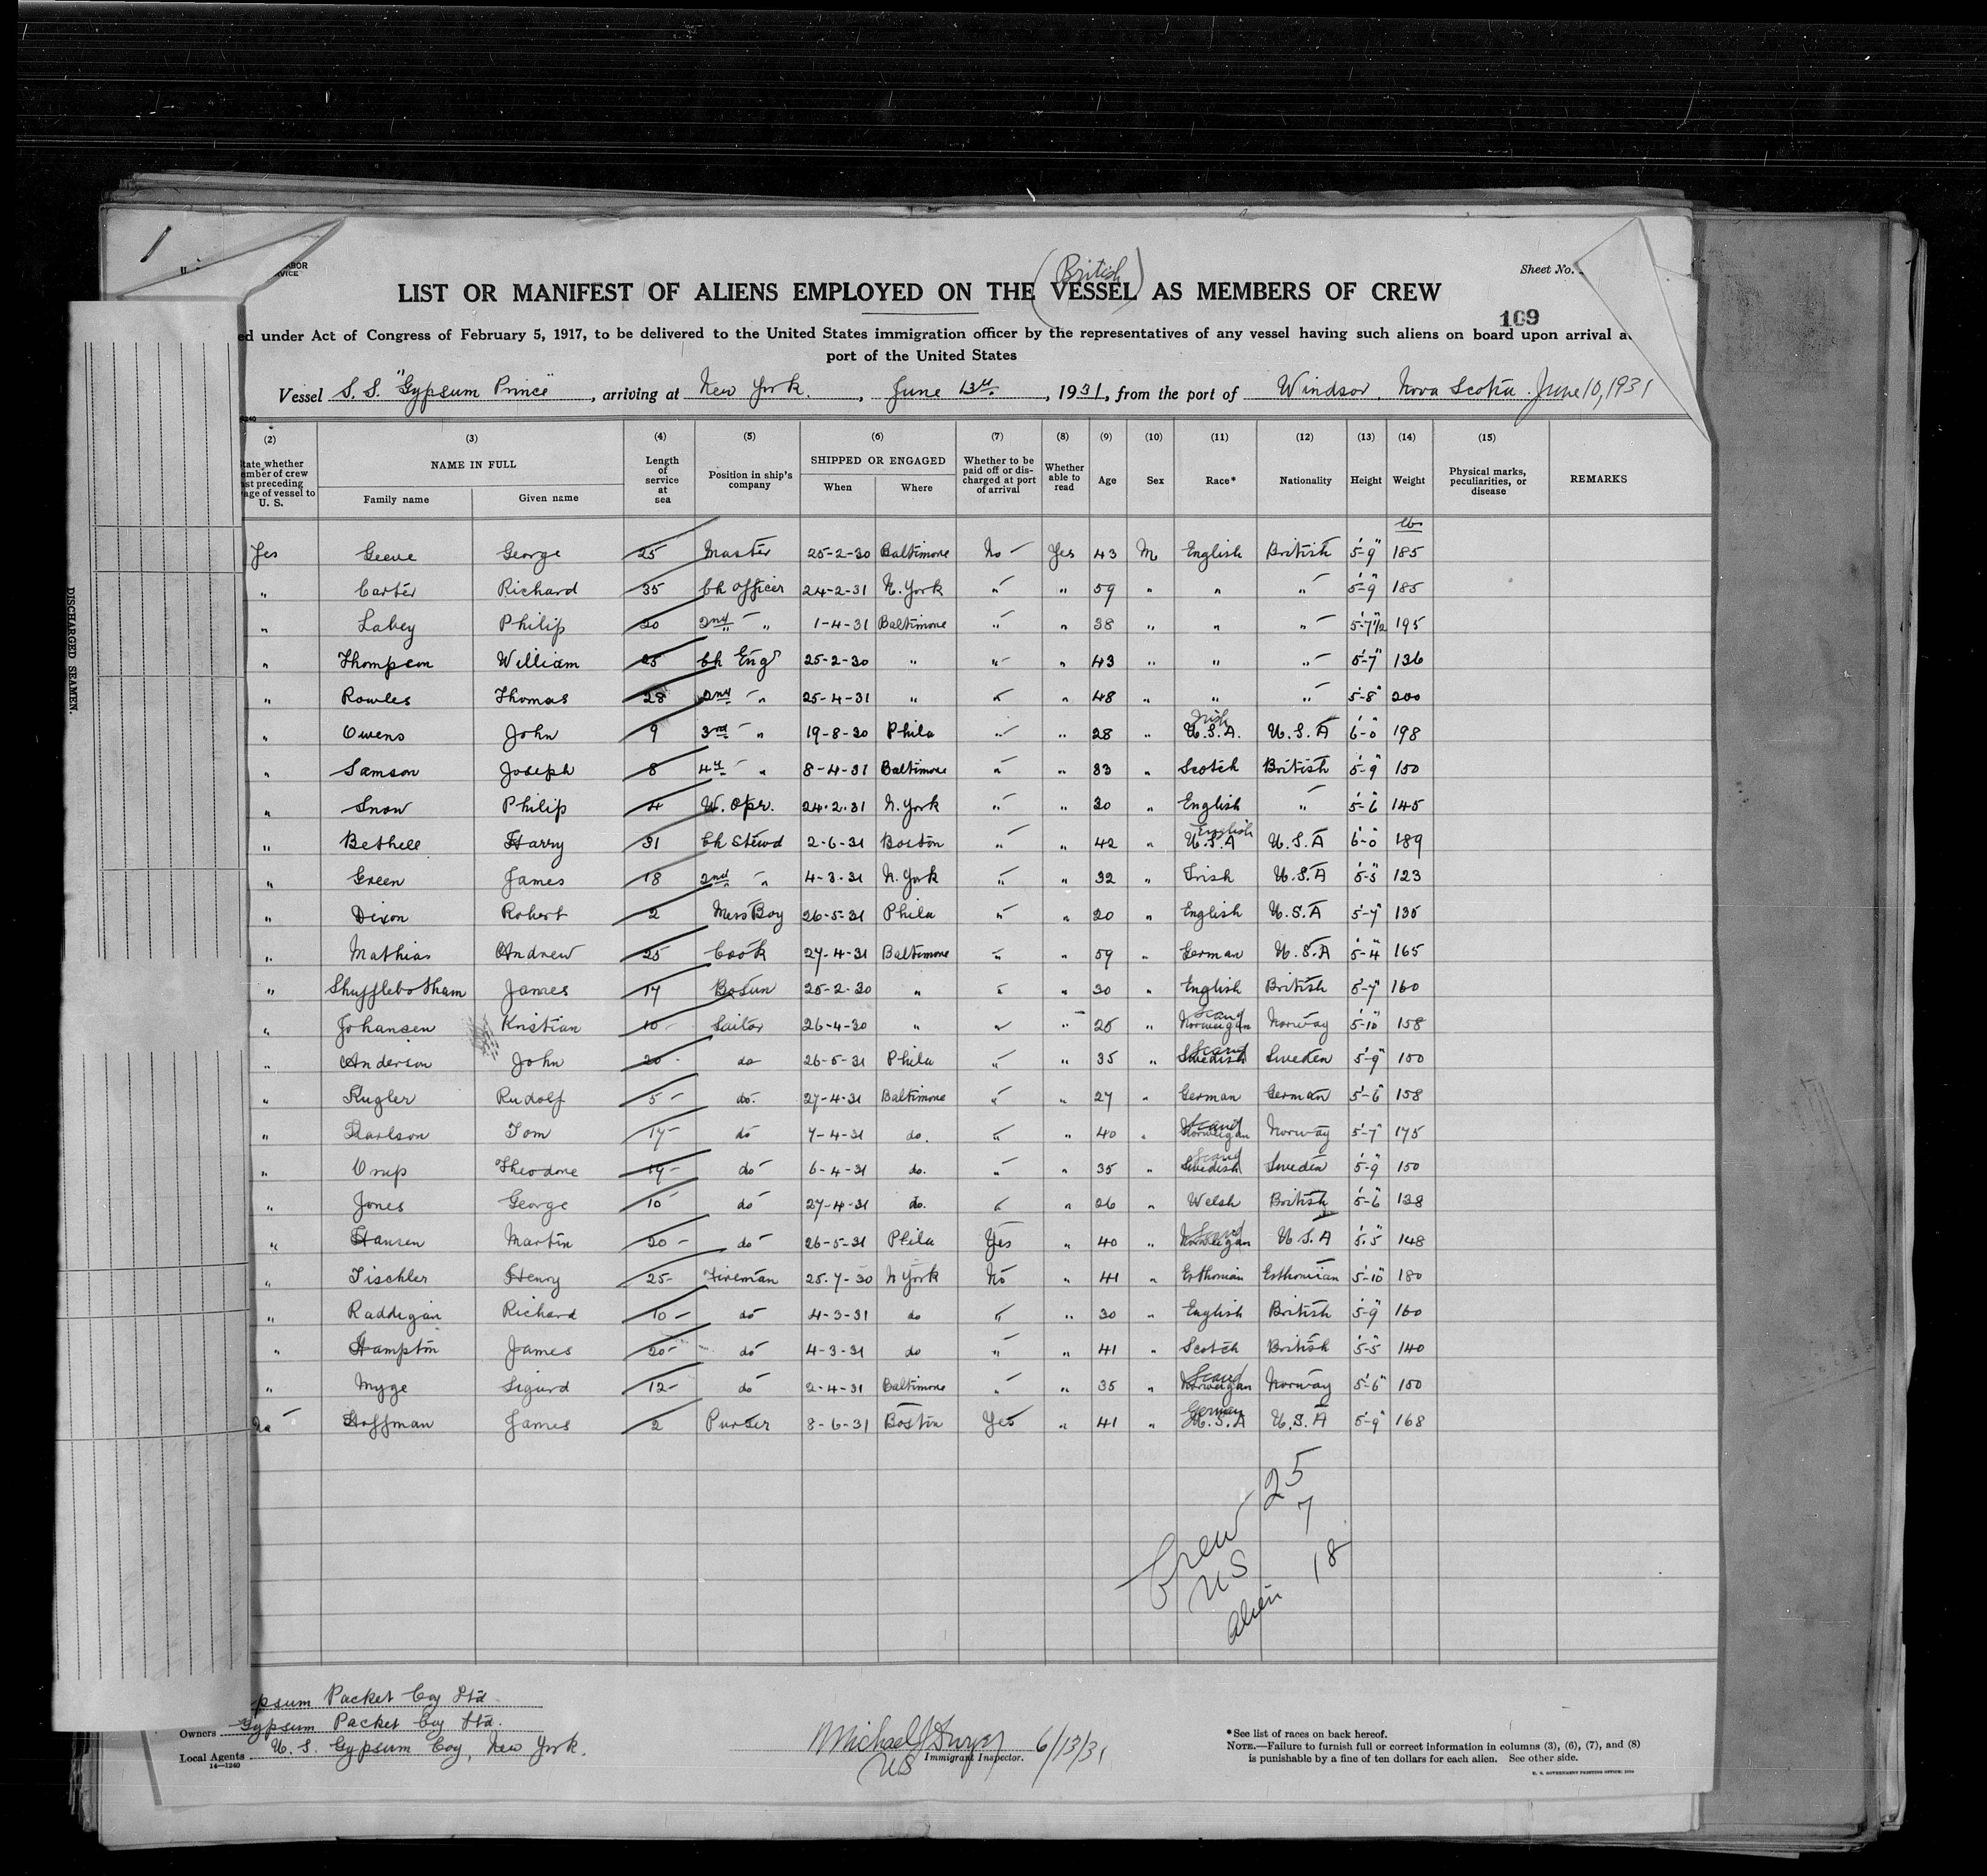 1
ABOR
VICE
Sheet No.
(British)
LIST OR MANIFEST OF ALIENS EMPLOYED ON THE VESSEL AS MEMBERS OF CREW
109
ed under Act of Congress of February 5, 1917, to be delivered to the United States immigration officer by the representatives of any vessel having such aliens on board upon arrival a
port of the United States
Vessel S. S. "Gypsum Prince", arriving at New York, June 13th, 1931, from the port of Windsor, Nova Scotia. June 10, 1931
(2) (3) (4) (5) (6) (7) (8) (9) (10) (11) (12) (13) (14) (15)
tate whether ember of crew st preceding age of vessel to U. S. NAME IN FULL Family name Given name Length of service at sea Position in ship's company SHIPPED OR ENGAGED When Where Whether to be paid off or discharged at port of arrival Whether able to read Age Sex Race* Nationality Height Weight Physical marks, peculiarities, or disease REMARKS
lbs
Yes Geeve George 25 Master 25-2-30 Baltimore No Yes 43 M English British 5'-9" 185
" Carter Richard 35 Ch Officer 24-2-31 N. York " " 59 " " " 5'-9" 185
" Labey Philip 20 2nd " 1-4-31 Baltimore " " 38 " " " 5'-7½" 195
" Thompson William 25 Ch Engr 25-2-30 " " " 43 " " " 5'-7" 136
" Rowles Thomas 28 2nd " 25-4-31 " " " 48 " " " 5'-8" 200
" Owens John 9 3rd " 19-8-30 Phila " " 28 " Irish U.S.A. U.S.A 6'-0" 198
" Samson Joseph 8 4th " 8-4-31 Baltimore " " 33 " Scotch British 5'-9" 150
" Snow Philip 4 W. Opr. 24-2-31 N. York " " 20 " English " 5'-6" 145
" Bethell Harry 31 Ch Stewd 2-6-31 Boston " " 42 " English U.S.A U.S.A 6'-0" 189
" Green James 18 2nd " 4-3-31 N. York " " 32 " Irish U.S.A 5'-5" 123
" Dixon Robert 2 Mess Boy 26-5-31 Phila " " 20 " English U.S.A 5'-7" 135
" Mathias Andrew 25 Cook 27-4-31 Baltimore " " 59 " German U.S.A 5'-4" 165
" Shufflebotham James 17 Bosun 25-2-30 " " " 30 " English British 5'-7" 160
" Johansen Kristian 10 Sailor 26-4-30 " " " 25 " Scand Norweigan Norway 5'-10" 158
" Anderson John 20 do 26-5-31 Phila " " 35 " Scand Swedish Sweden 5'-9" 150
" Kugler Rudolf 5 do. 27-4-31 Baltimore " " 27 " German German 5'-6" 158
" Karlson Tom 17 do 7-4-31 do. " " 40 " Scand Norweigan Norway 5'-7" 175
" Theodore 19 do 6-4-31 do. " " 35 " Scand Swedish Sweden 5'-9" 150
" Jones George 10 do 27-4-31 do. " " 26 " Welsh British 5'-6" 138
" Hansen Martin 20 do 26-5-31 Phila Yes " 40 " Scand Norweigan U.S.A 5'-5" 148
" Tischler Henry 25 Fireman 25-7-30 N York No " 41 " Esthonian Esthonian 5'-10" 180
" Raddigan Richard 10 do 4-3-31 do " " 30 " English British 5'-9" 160
" Hampton James 20 do 4-3-31 do " " 41 " Scotch British 5'-5" 140
" Myge Sigurd 12 do 2-4-31 Baltimore " " 35 " Scand Norweigan Norway 5'-6" 150
no Hoffman James 2 Purser 8-6-31 Boston Yes " 41 " German U.S.A U.S.A 5'-9" 168
Crew 25
US 7
Alien 18
DISCHARGED SEAMEN.
psum Packet Coy Ltd
Owners Gypsum Packet Coy Ltd.
Local Agents U. S. Gypsum Coy, New York.
14—1240
Michael J Dwyer 6/13/31
US Immigrant Inspector.
*See list of races on back hereof.
NOTE.—Failure to furnish full or correct information in columns (3), (6), (7), and (8)
is punishable by a fine of ten dollars for each alien. See other side.